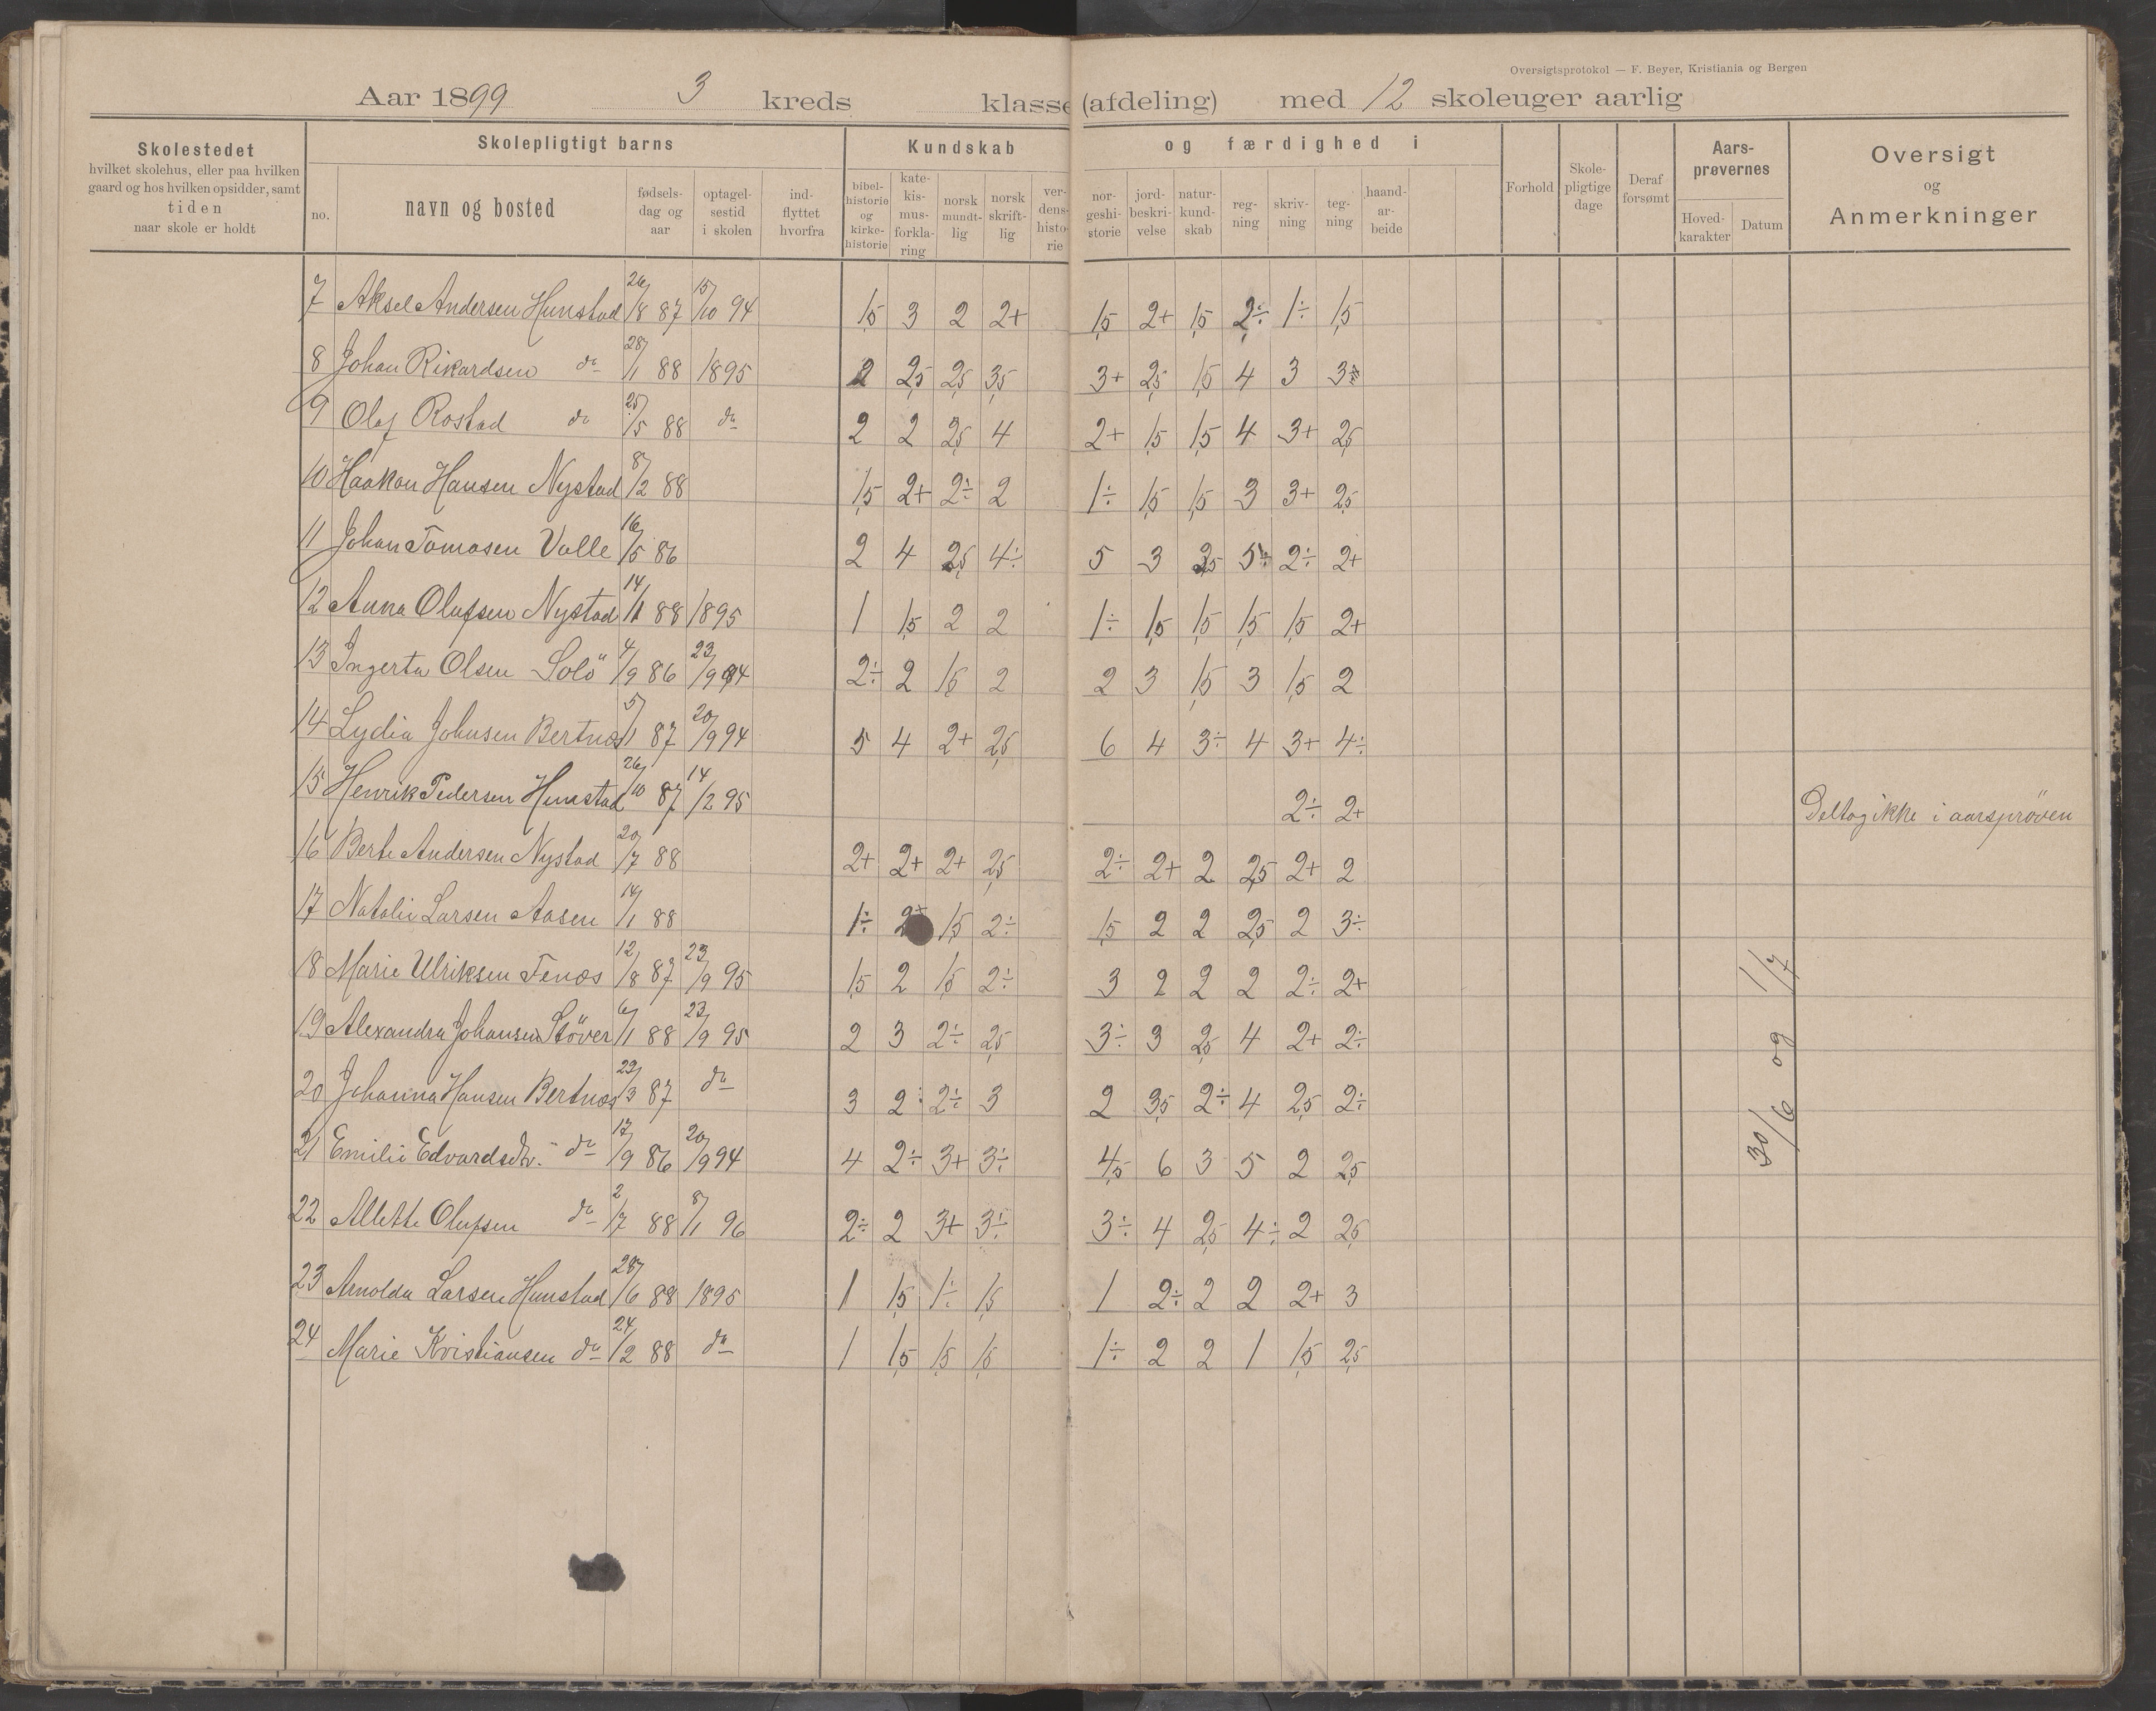 Oversigtsprotokol — F. Beyer, Kristiania og Bergen
Aar 1899 3 kreds klasse (afdeling) med 12 skoleuger aarlig
Skolestedet
hvilket skolehus, eller paa hvilken
gaard og hos hvilken opsidder, samt
tiden
naar skole er holdt
Skolepligtigt barns
no.
navn og bosted
fødsels-
dag og
aar
optagel-
sestid
i skolen
ind-
flyttet
hvorfra
Kundskab og færdighed i
bibel-
historie
og
kirke-
historie
kate-
kis-
mus-
forkla-
ring
norsk
mundt-
lig
norsk
skrift-
lig
ver-
dens-
histo-
rie
nor-
geshi-
storie
jord-
beskri-
velse
natur-
kund-
skab
reg-
ning
skriv-
ning
teg-
ning
haand-
ar-
beide
Forhold
Skole-
pligtige
dage
Deraf
forsømt
Aars-
prøvernes
Hoved-
karakter
Datum
Oversigt
og
Anmerkninger
7 Aksel Andersen Hunstad 26/8 87 15/10 94 1,5 3 2 2+ 1,5 2+ 1,5 2÷ 1÷ 1,5
8 Johan Rikardsen do 28/1 88 1895 2 2,5 2,5 3,5 3+ 2,5 1,5 4 3 3
9 Olaf Rostad do 25/5 88 do 2 2 2,5 4 2+ 1,5 1,5 4 3+ 2,5
10 Haakon Hansen Nystad 8/2 88 1,5 2+ 2÷ 2 1÷ 1,5 1,5 3 3+ 2,5
11 Johan Tomasen Valle 16/5 86 2 4 2,5 4÷ 5 3 2,5 5÷ 2÷ 2+
12 Anna Olufsen Nystad 14/11 88 1895 1 1,5 2 2 1÷ 1,5 1,5 1,5 1,5 2+
13 Ingerta Olsen Solö 4/9 86 23/9 94 2÷ 2 1,5 2 2 3 1,5 3 1,5 2
14 Lydia Johnsen Bertnes 5/1 87 20/9 94 5 4 2+ 2,5 6 4 3÷ 4 3+ 4÷
15 Henrik Pedersen Hunstad 26/10 87 14/2 95 2÷ 2+ Deltog ikke i aarspröven
16 Berte Andersen Nystad 20/7 88 2+ 2+ 2+ 2,5 2÷ 2+ 2 2,5 2+ 2
17 Natalie Larsen Aasen 14/1 88 1÷ 2+ 1,5 2÷ 1,5 2 2 2,5 2 3÷
18 Marie Ulriksen Fenes 12/8 87 23/9 95 1,5 2 1,5 2÷ 3 2 2 2 2÷ 2+
19 Alexandra Johansen Støver 6/1 88 23/9 95 2 3 2÷ 2,5 3÷ 3 2,5 4 2+ 2÷
20 Johanna Hansen Bertnes 22/3 87 do 3 2 2÷ 3 2 3,5 2÷ 4 2,5 2÷
21 Emilie Edvardsdtr. do 17/9 86 20/9 94 4 2÷ 3+ 3÷ 4,5 6 3 5 2 2,5
22 Allette Olufsen do 2/7 88 8/1 96 2÷ 2 3+ 3÷ 3÷ 4 2,5 4÷ 2 2,5
23 Arnolda Larsen Hunstad 28/6 88 1895 1 1,5 1÷ 1,5 1 2÷ 2 2 2+ 3
24 Marie Kristiansen do 24/2 88 do 1 1,5 1,5 1,5 1÷ 2 2 1 1,5 2,5
30/6 og 1/7